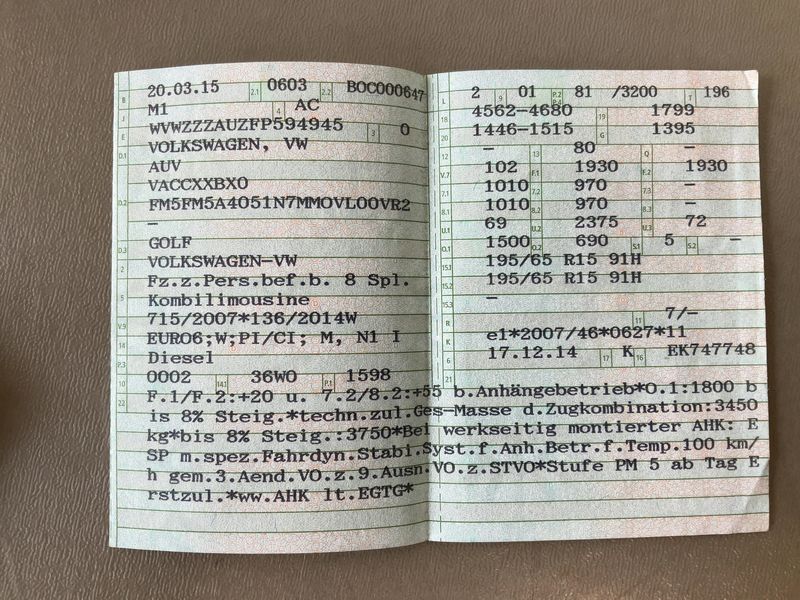 B 20.03.15 2.1 0603 2.2 BOC000647
J M1 4 AC
E WVWZZZAUZFP594945 3 0
D.1 VOLKSWAGEN, VW
AUV
VACCXXBX0
D.2 FM5FM5A4051N7MMOVL00VR2
–
D.3 GOLF
2 VOLKSWAGEN-VW
Fz.z.Pers.bef.b. 8 Spl.
5 Kombilimousine
V.9 715/2007*136/2014W
EURO6;W;PI/CI; M, N1 I
P.3 Diesel
10 0002 14.1 36W0 P.1 1598
L 2 9 01 P.2 P.4 81 /3200 T 196
18 4562-4680 19 1799
20 1446-1515 G 1395
12 – 13 80 Q –
V.7 102 F.1 1930 F.2 1930
7.1 1010 7.2 970 7.3 –
8.1 1010 8.2 970 8.3 –
U.1 69 U.2 2375 U.3 72
O.1 1500 O.2 690 S.1 5 S.2 –
15.1 195/65 R15 91H
15.2 195/65 R15 91H
15.3 –
R 11 7/–
K e1*2007/46*0627*11
6 17.12.14 17 K 16 EK747748
21
22 F.1/F.2:+20 u. 7.2/8.2:+55 b.Anhängebetrieb*O.1:1800 b
is 8% Steig.*techn.zul.Ges-Masse d.Zugkombination:3450
kg*bis 8% Steig.:3750*Bei werkseitig montierter AHK: E
SP m.spez.Fahrdyn.Stabi.Syst.f.Anh.Betr.f.Temp.100 km/
h gem.3.Aend.VO.z.9.Ausn.VO.z.STVO*Stufe PM 5 ab Tag E
rstzul.*ww.AHK lt.EGTG*